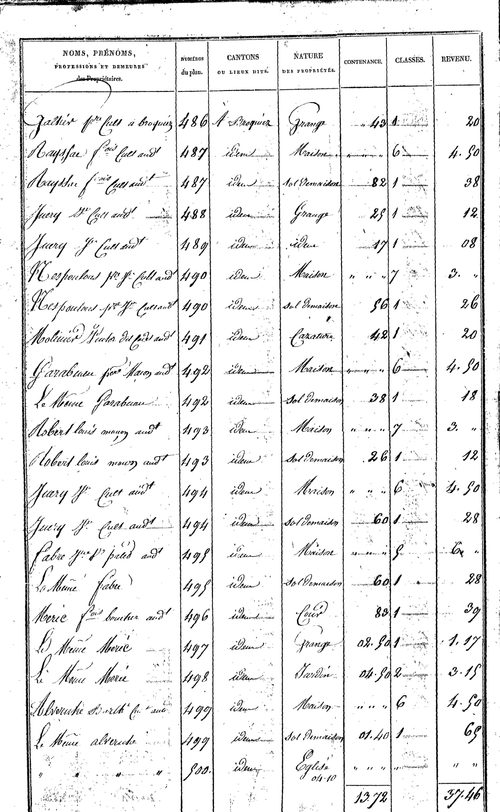 NOMS, PRÉNOMS, PROFESSIONS ET DEMEURES des Propriétaires. NUMÉROS du plan. CANTONS OU LIEUX DITS. NATURE DES PROPRIÉTÉS. CONTENANCE. CLASSES. REVENU.
Cult à Broquiez 486 Broquiez Grange " 43 1 20
Cult audt 487 idem Maison " " " 6 4.50
Cult audt 487 idem Sol de maison " 82 1 38
Juery Cult audt 488 idem Grange 25 1 12
Juery Jn Cult audt 489 idem idem 17 1 08
Nespoulous pre Jn Cult audt 490 idem Maison " " " 7 3. "
Nespoulous pre Jn Cult audt 490 idem Sol de maison 56 1 26
Molinier audt 491 idem 42 1 20
Garabuau Maçon audt 492 idem Maison " " " 6 4.50
Le Même Garabuau 492 idem Sol de maison 38 1 18
Robert Louis maçon audt 493 idem Maison " " " 7 3. "
Robert Louis maçon audt 493 idem Sol de maison 26 1 12
Juery Jn Cult audt 494 idem Maison " " " 6 4.50
Juery Jn Cult audt 494 idem Sol de maison 60 1 28
Fabre audt 495 idem Maison " " " 5 6. "
Le Même Fabre 495 idem Sol de maison 60 1 28
Meric audt 496 idem Cour 83 1 39
Le Même Meric 497 idem grange 02.50 1 1.17
Le Même Meric 498 idem Jardin 04.50 2 3.15
Alvernhe audt 499 idem Maison " " 6 4.50
Le Même alvernhe 499 idem Sol de maison 01.40 1 65
" " " " 500. idem Église " " " " "
04-10
1372 37.46